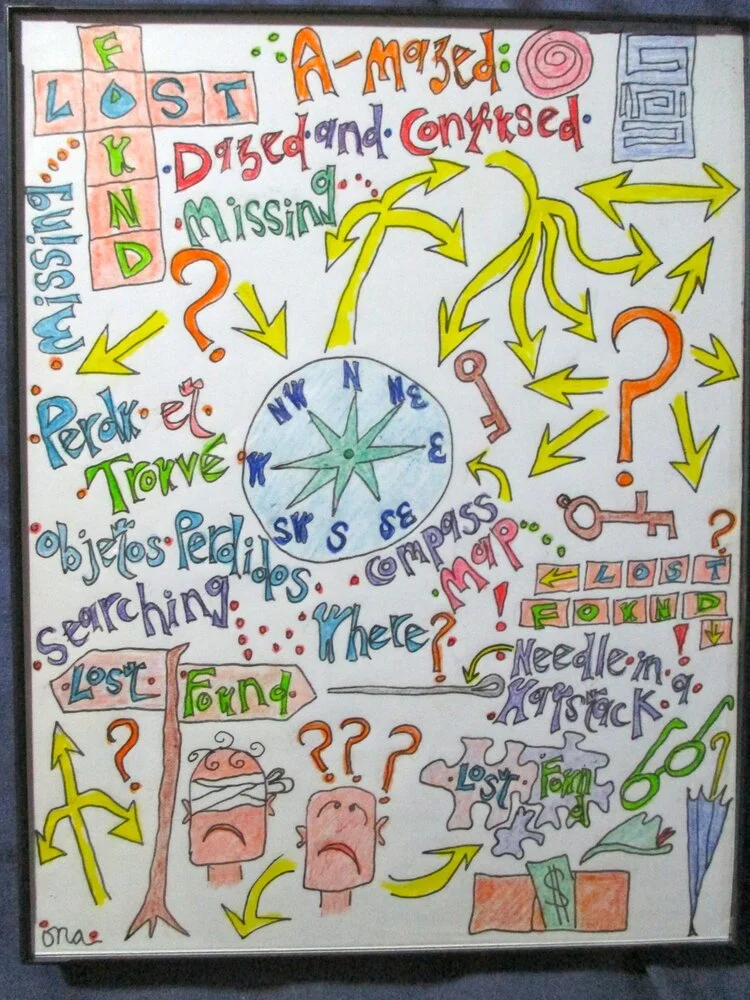 FOUND
LOST
A-mazed
Dazed and Confused
Missing
Missing...
?
?
N
NW NE
W E
SW SE
S
Perdu et
Trouvé
Objetos Perdidos
Compass
Map
Searching
Where?
?
← LOST
FOUND
↓
!
!
Needle in a
Haystack
Lost
Found
?
???
Lost Found
$
ona